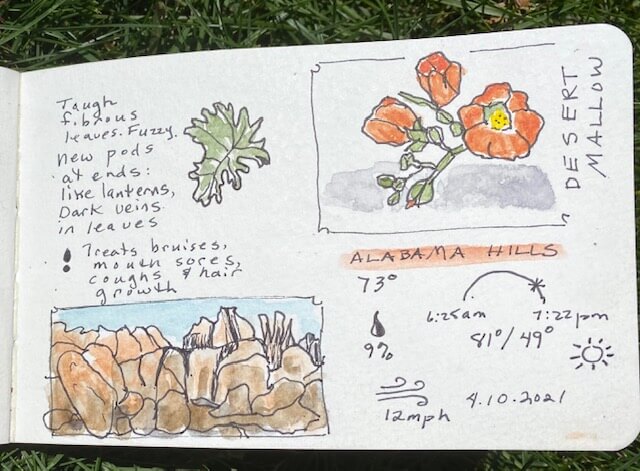 Tough
fibrous
leaves. Fuzzy,
new pods
at ends:
like lanterns,
Dark veins
in leaves
Treats bruises,
mouth sores,
coughs & hair
growth
DESERT
MALLOW
ALABAMA HILLS
73°
6:25am 7:22pm
81°/49°
9%
12mph
4.10.2021